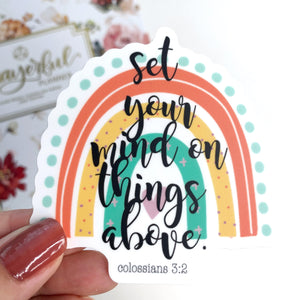 set
your
mind on
things
above.
colossians 3:2